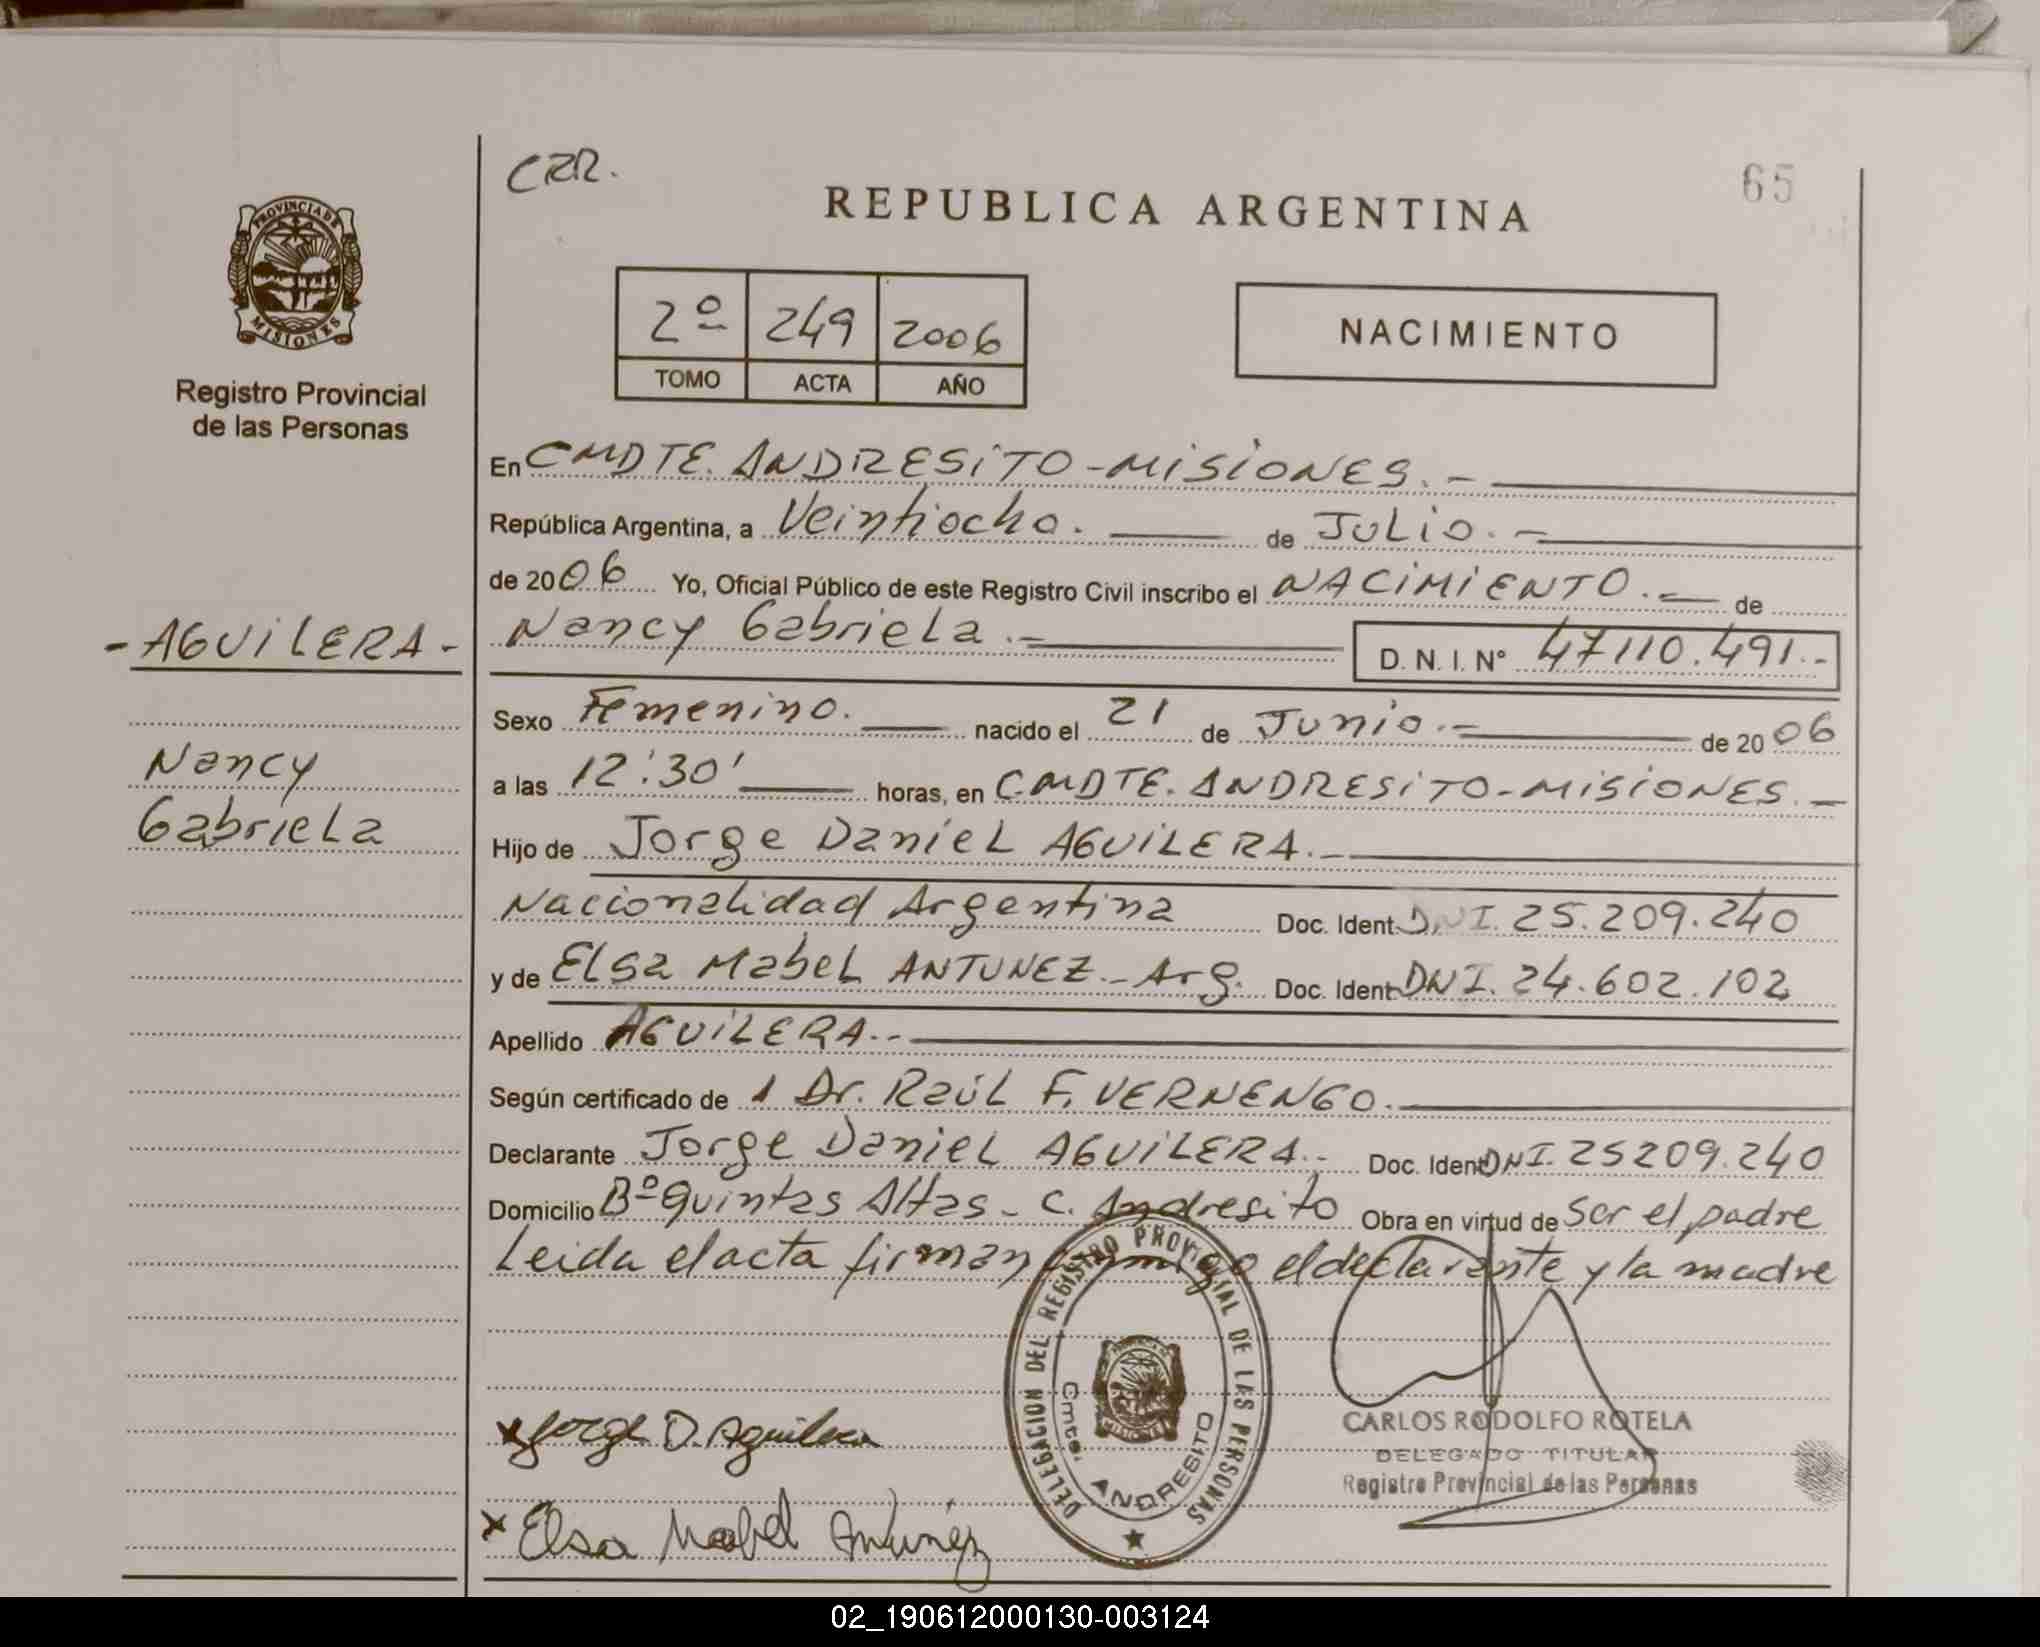 CRR.
65
REPUBLICA ARGENTINA
PROVINCIA DE
MISIONES
Registro Provincial
de las Personas
2º 249 2006
TOMO ACTA AÑO
NACIMIENTO
En CMDTE. ANDRESITO-MISIONES.-
República Argentina, a Veintiocho. de JULIO.-
de 2006 Yo, Oficial Público de este Registro Civil inscribo el NACIMIENTO.- de
-AGUILERA-
Nancy Gabriela.-
D. N. I. Nº 47110.491.-
Sexo Femenino. nacido el 21 de Junio.- de 2006
Nancy
Gabriela
a las 12:30' horas, en CMDTE. ANDRESITO-MISIONES.-
Hijo de Jorge Daniel AGUILERA.-
Nacionalidad Argentina Doc. Ident. DNI. 25.209.240
y de Elsa Mabel ANTUNEZ.- Arg. Doc. Ident. DNI. 24.602.102
Apellido AGUILERA.-
Según certificado de 1 Dr. Raúl F. VERNENGO.
Declarante Jorge Daniel AGUILERA.- Doc. Ident. DNI. 25209.240
Domicilio Bº Quintas Altas - C. Andresito Obra en virtud de ser el padre
Leida el acta firman conmigo el declarante y la madre
DELEGACION DEL REGISTRO PROVINCIAL DE LAS PERSONAS
Cmte. ANDRESITO
PROVINCIA DE
MISIONES
CARLOS RODOLFO ROTELA
DELEGADO TITULAR
Registro Provincial de las Personas
x Jorge D. Aguilera
x Elsa Mabel Antunez
02_190612000130-003124